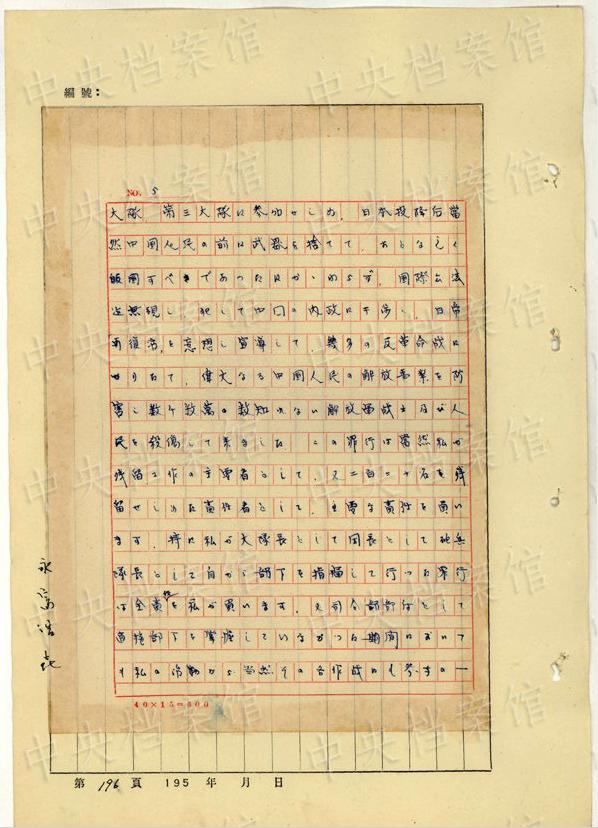 編號:
NO. 5
大隊、第三大隊に参加せしめ、日本投降后當
然中国人民の前に武器を捨てて、おとなしく
皈国すべきであったにかゝわらず、国際公法
を無視し、犯して中国の内政に干渉し、日帝
再復活を意想し宣導して、幾多の反革命戦に
せりたて、偉大なる中国人民の解放事業を防
害し数十数萬の数知れない解放軍战士及び人
民を殺傷して来ました。この罪行は當然私が
残留工作の主要者として、又二百二十名を残
留せしめた責任者として、主要な責任を負い
ます。特に私が大隊長として団長として砲兵
隊長として自から部下を指揮して行った罪行
は全責任を私が負います。又司令部部付として
直接部下を掌握していなかった期間において
も私の活動から、当然その各作战にも参与の一
40×15=600
第 196 頁 195 年 月 日
中央档案馆